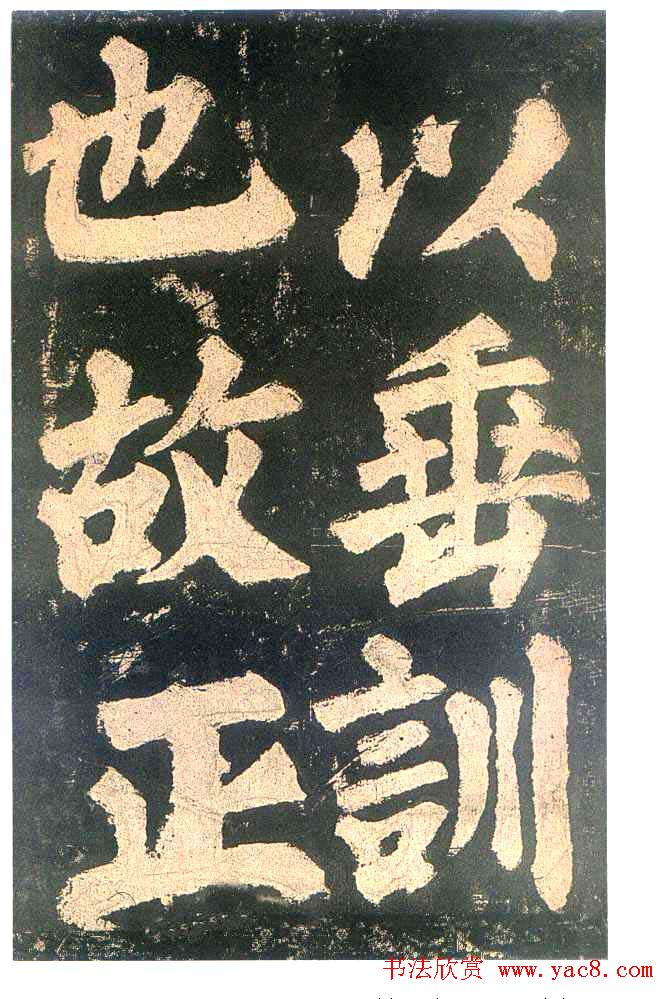 以垂訓
也故正
书法欣赏 www.yac8.com